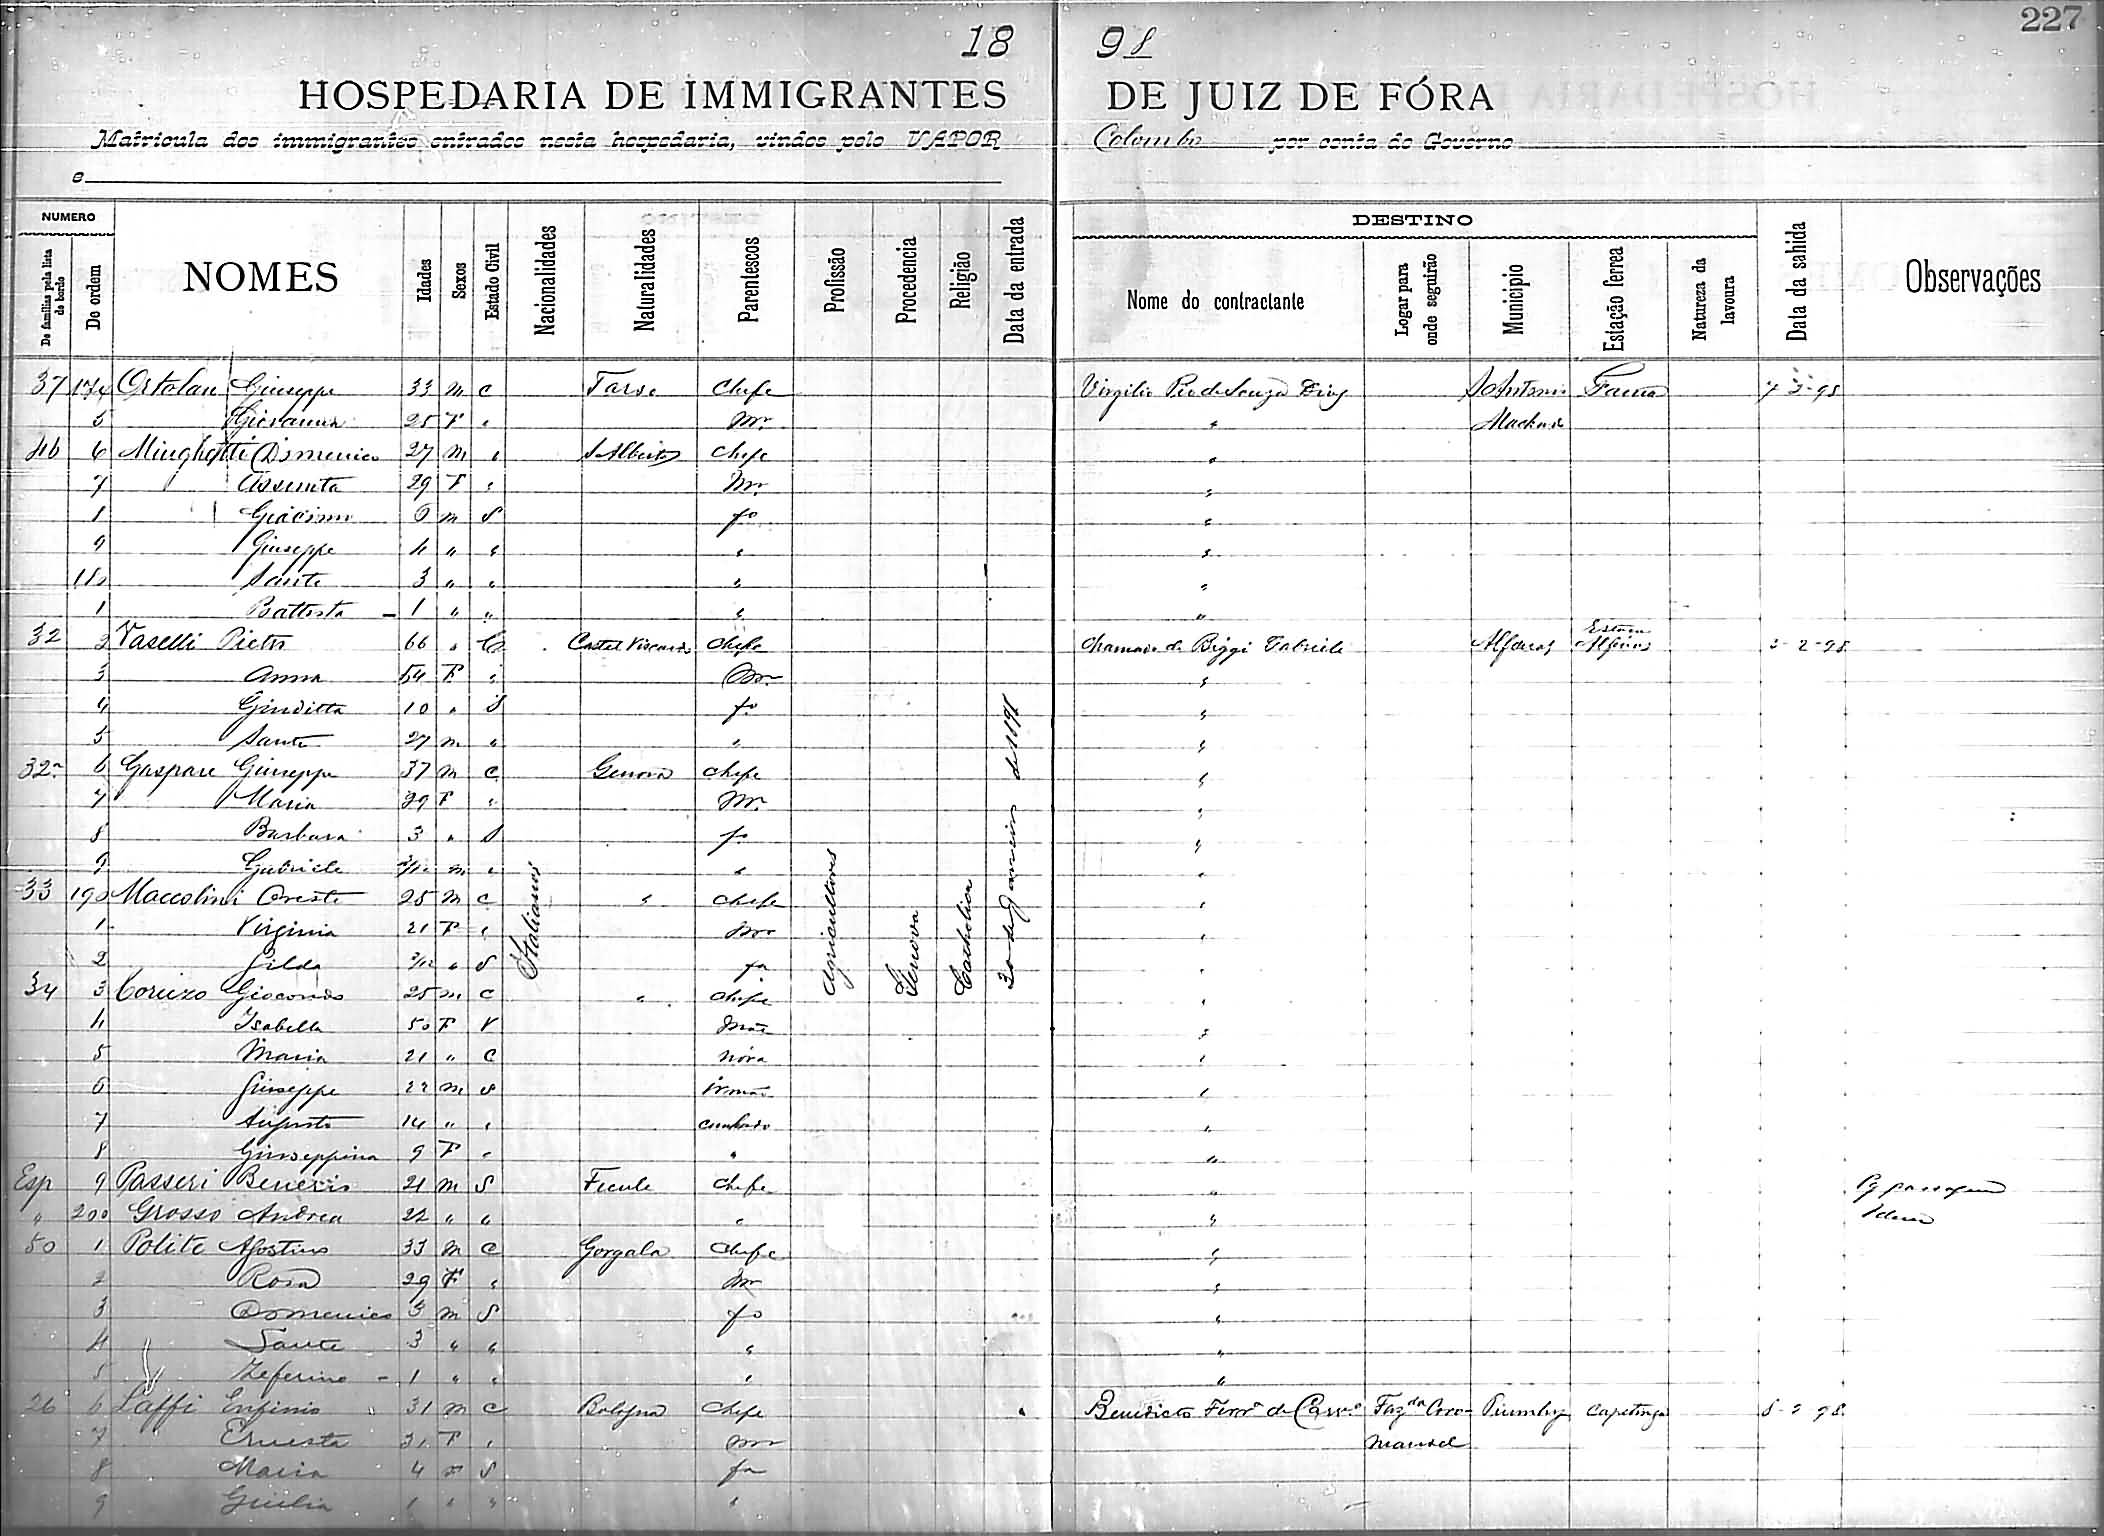 227
18 98
HOSPEDARIA DE IMMIGRANTES DE JUIZ DE FÓRA
Matricula dos immigrantes entrados nesta hospedaria, vindos pelo VAPOR Colombo por conta do Governo
e
NUMERO
De familias pela lista de bordo
De ordem
NOMES
Idades
Sexos
Estado Civil
Nacionalidades
Naturalidades
Parentescos
Profissão
Procedencia
Religião
Data da entrada
DESTINO
Nome do contractante
Logar para onde seguirão
Municipio
Estação ferrea
Natureza da lavoura
Data da sahida
Observações
37 174 Ortolan Giuseppe 33 m c Chefe Virgilio de Souza Dias
5 Giovanna 25 F " Mr. " Machado
46 6 Minghetti Domenico 27 m " S Alberto Chefe "
7 Assunta 29 F " Mr. "
Giacimo m S fo "
9 Giuseppe 4 " " " "
180 Sante 3 " " " "
1 Battista - 1 " " " "
32 2 Vaselli Pietro 66 " C Castel Viscardo Chefe Chamado de Biggi Gabriele Alfenas Alfenas 2-2-98
3 Anna 54 F " Mr. "
4 Giuditta 10 " S fa "
5 Sante 27 m " " "
32a 6 Gaspare Giuseppe 37 m c Genova Chefe "
7 Maria 29 F " Mr. "
8 Barbara 3 " S fa "
9 Gabriele m " " "
33 190 Maccolini Oreste 25 m c " Chefe "
1 Virginia 21 F " Mr "
2 Gilda 2/12 " S fa "
34 3 Corizzo Giocondo 25 m c " Chefe "
4 Isabella 50 F V Mãe "
5 Maria 21 " C nóra "
6 Giuseppe 22 m S irmão "
7 Augusto 14 " " cunhado "
8 Giuseppina 9 F " " "
Esp 9 Passeri 21 m S Ficule Chefe " Pg passagem
" 200 Grosso Andrea 22 " " " " Idem
50 1 Polite Agostino 33 m c Gorgala Chefe "
2 Rosa 29 F " Mr "
3 Domenico 3 m S fo "
4 Sante 3 " " " "
5 Zeferino - 1 " " " "
26 6 Laffi 31 m c Bologna Chefe Benedicto Ferrª de Carvº Fazda Piumhy Capetinga 8-2-98
7 Ernesta 31 F " Mr
8 Maria 4 F S fa
9 Giulia 1 " " "
Italianos
Agricultores
Genova
Catholica
30 de Janeiro de 1898